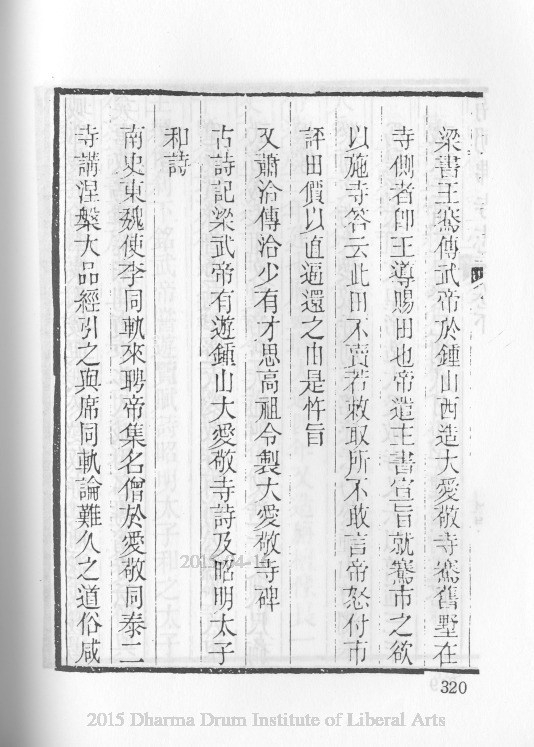 梁書王騫傳武帝於鍾山西造大愛敬寺騫舊墅在
寺側者卽王導賜田也帝遣主書宣旨就騫市之欲
以施寺答云此田不賣若敕取所不敢言帝怒付市
評田價以直逼還之由是忤旨
又蕭洽傳洽少有才思高祖令製大愛敬寺碑
古詩記梁武帝有遊鍾山大愛敬寺詩及昭明太子
和詩
南史東魏使李同軌來聘帝集名僧於愛敬同泰二
寺講涅槃大品經引之與席同軌論難久之道俗咸
320
2015 Dharma Drum Institute of Liberal Arts